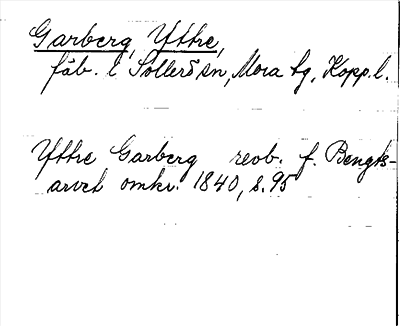 Garberg, Yttre,
fäb. i Sollerö sn, Mora tg, Kopp. l.
Yttre Garberg reob. f. Bengts-
arvet omkr. 1840, s. 95